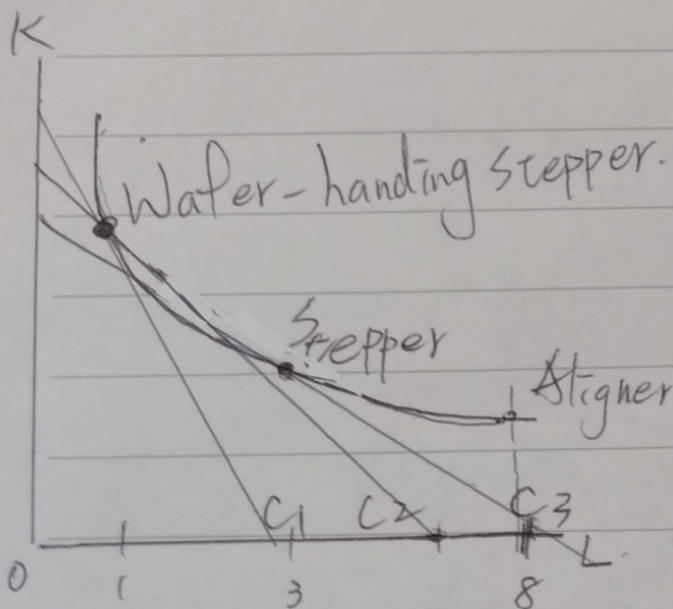 K
Wafer-handing stepper.
Stepper
Aligner
C1 C2 C3
L.
0 1 3 8